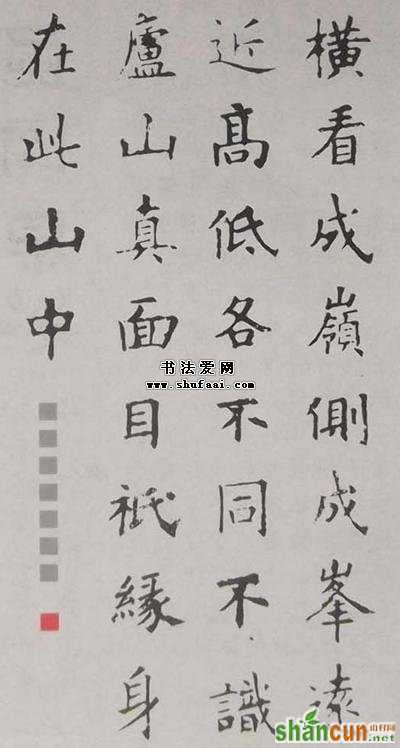 橫看成嶺側成峯遠
近高低各不同不識
廬山真面目祇緣身
在此山中
书法爱网
www.shufaai.com
shancun
山村网
.net